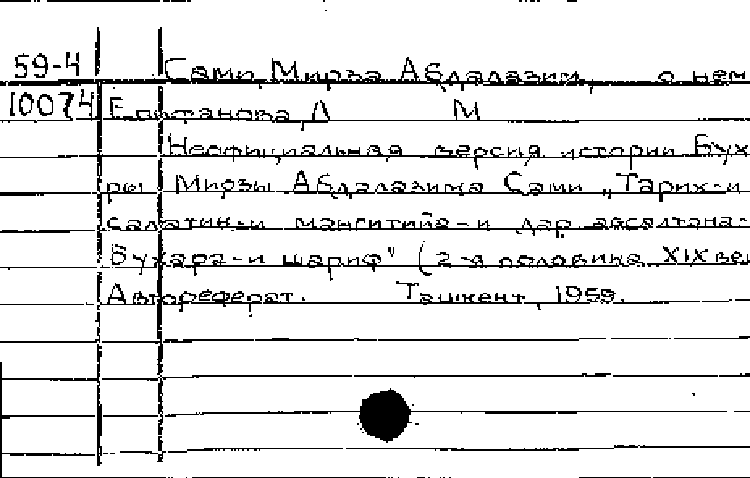 59-4 Сами, Мирза Абдалазим, о нем
10074 Епифанова Л М
Неофициальная версия истории Бух
ры Мирзы Абдалазима Сами „Тарих-и
салатин-и мангитийа-и дар ассалтана-
Бухара-и шариф" (2-я половина XIX ве
Автореферат. Ташкент, 1959.